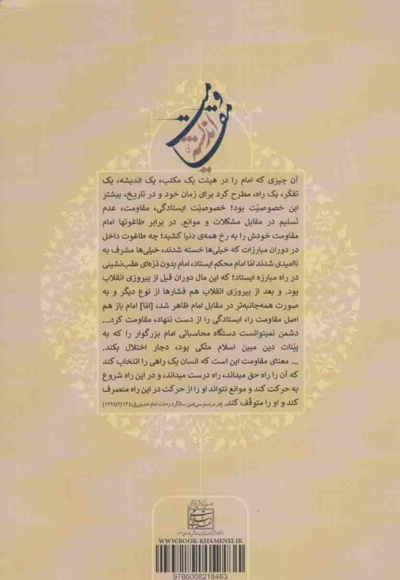 اندیشه
مقاومت
آن چیزی که امام را در هیئت یک مکتب، یک اندیشه، یک
تفکّر، یک راه، مطرح کرد برای زمان خود و در تاریخ، بیشتر
این خصوصیّت بود؛ خصوصیّت ایستادگی، مقاومت، عدم
تسلیم در مقابل مشکلات و موانع. در برابر طاغوتها امام
مقاومت خودش را به رخ همه‌ی دنیا کشید؛ چه طاغوت داخل
در دوران مبارزات که خیلی‌ها خسته شدند، خیلی‌ها مشرف به
ناامیدی شدند امّا امام محکم ایستاد، امام بدون ذرّه‌ای عقب‌نشینی
در راه مبارزه ایستاد؛ که این مال دوران قبل از پیروزی انقلاب
بود. و بعد از پیروزی انقلاب هم فشارها از نوع دیگر و به
صورت همه‌جانبه‌تر در مقابل امام ظاهر شد، [امّا] امام باز هم
اصل مقاومت راه، ایستادگی را از دست ننهاد، مقاومت کرد...
دشمن نمیتوانست دستگاه محاسباتی امام بزرگوار را که به
بیّنات دین مبین اسلام متّکی بود، دچار اختلال بکند.
... معنای مقاومت این است که انسان یک راهی را انتخاب کند
که آن را راه حق میداند، راه درست میداند، و در این راه شروع
به حرکت کند و موانع نتواند او را از حرکت در این راه منصرف
کند و او را متوقّف کند. (در مراسم سی‌امین سالگرد رحلت امام خمینی (ره) ۱۳۹۸/۳/۱۴)
WWW.BOOK-KHAMENEI.IR
9786008218463